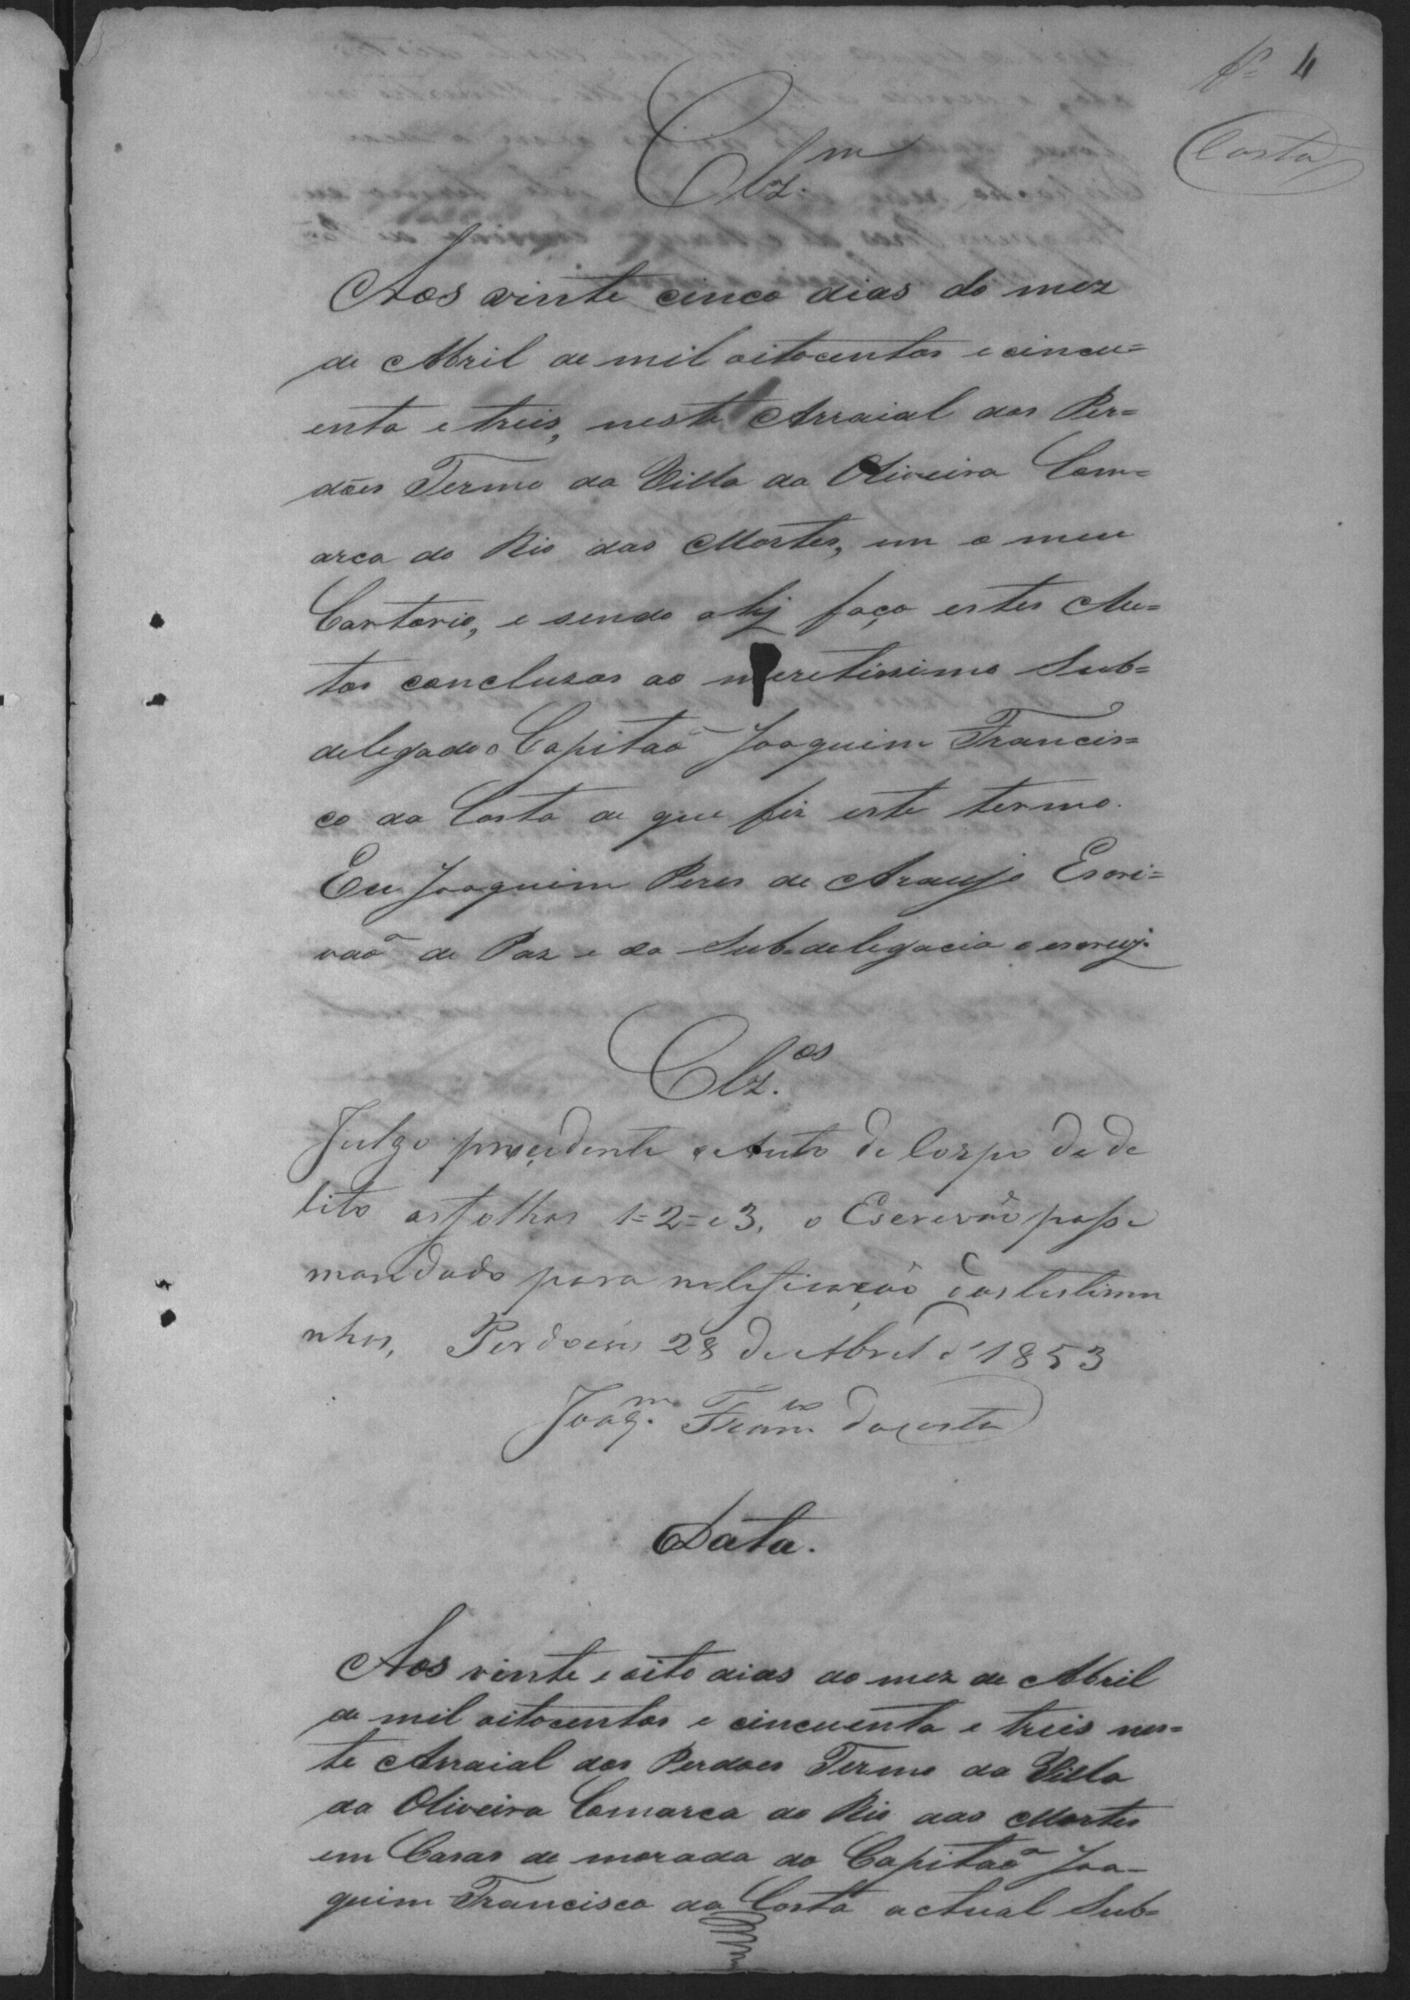 fs 4
Costa
Clz.m
Aos vinte cinco dias do mez
de Abril de mil oitocentos e cincu=
enta e treis, neste Arraial dos Per=
dões Termo da Villa da Oliveira Com=
arca do Rio das Mortes, em o meu
Cartorio, e sendo ahy faço estes Au=
tos concluzos ao meretissimo Sub=
delegado o Capitaõ Joaquim Francis=
co da Costa de que fiz este termo.
Eu Joaquim Peres de Araujo Escri=
vaõ de Paz e da Sub=delegacia o escrevy.
Clz.os
Julgo precedente o Auto de Corpo de de
lito as folhas 1=2=e3, o Escrevão passe
mandado para notificação das testimu
nhas, Perdoens 28 de Abril d'1853
Joaq.m Fran.co da Costa
Data.
Aos vinte e oito dias do mez de Abril
de mil oitocentos e cincuenta e treis nes=
te Arraial dos Perdoes Termo da Villa
da Oliveira Comarca do Rio das Mortes
em Casas de morada do Capitaõ Joa=
quim Francisco da Costa actual Sub=